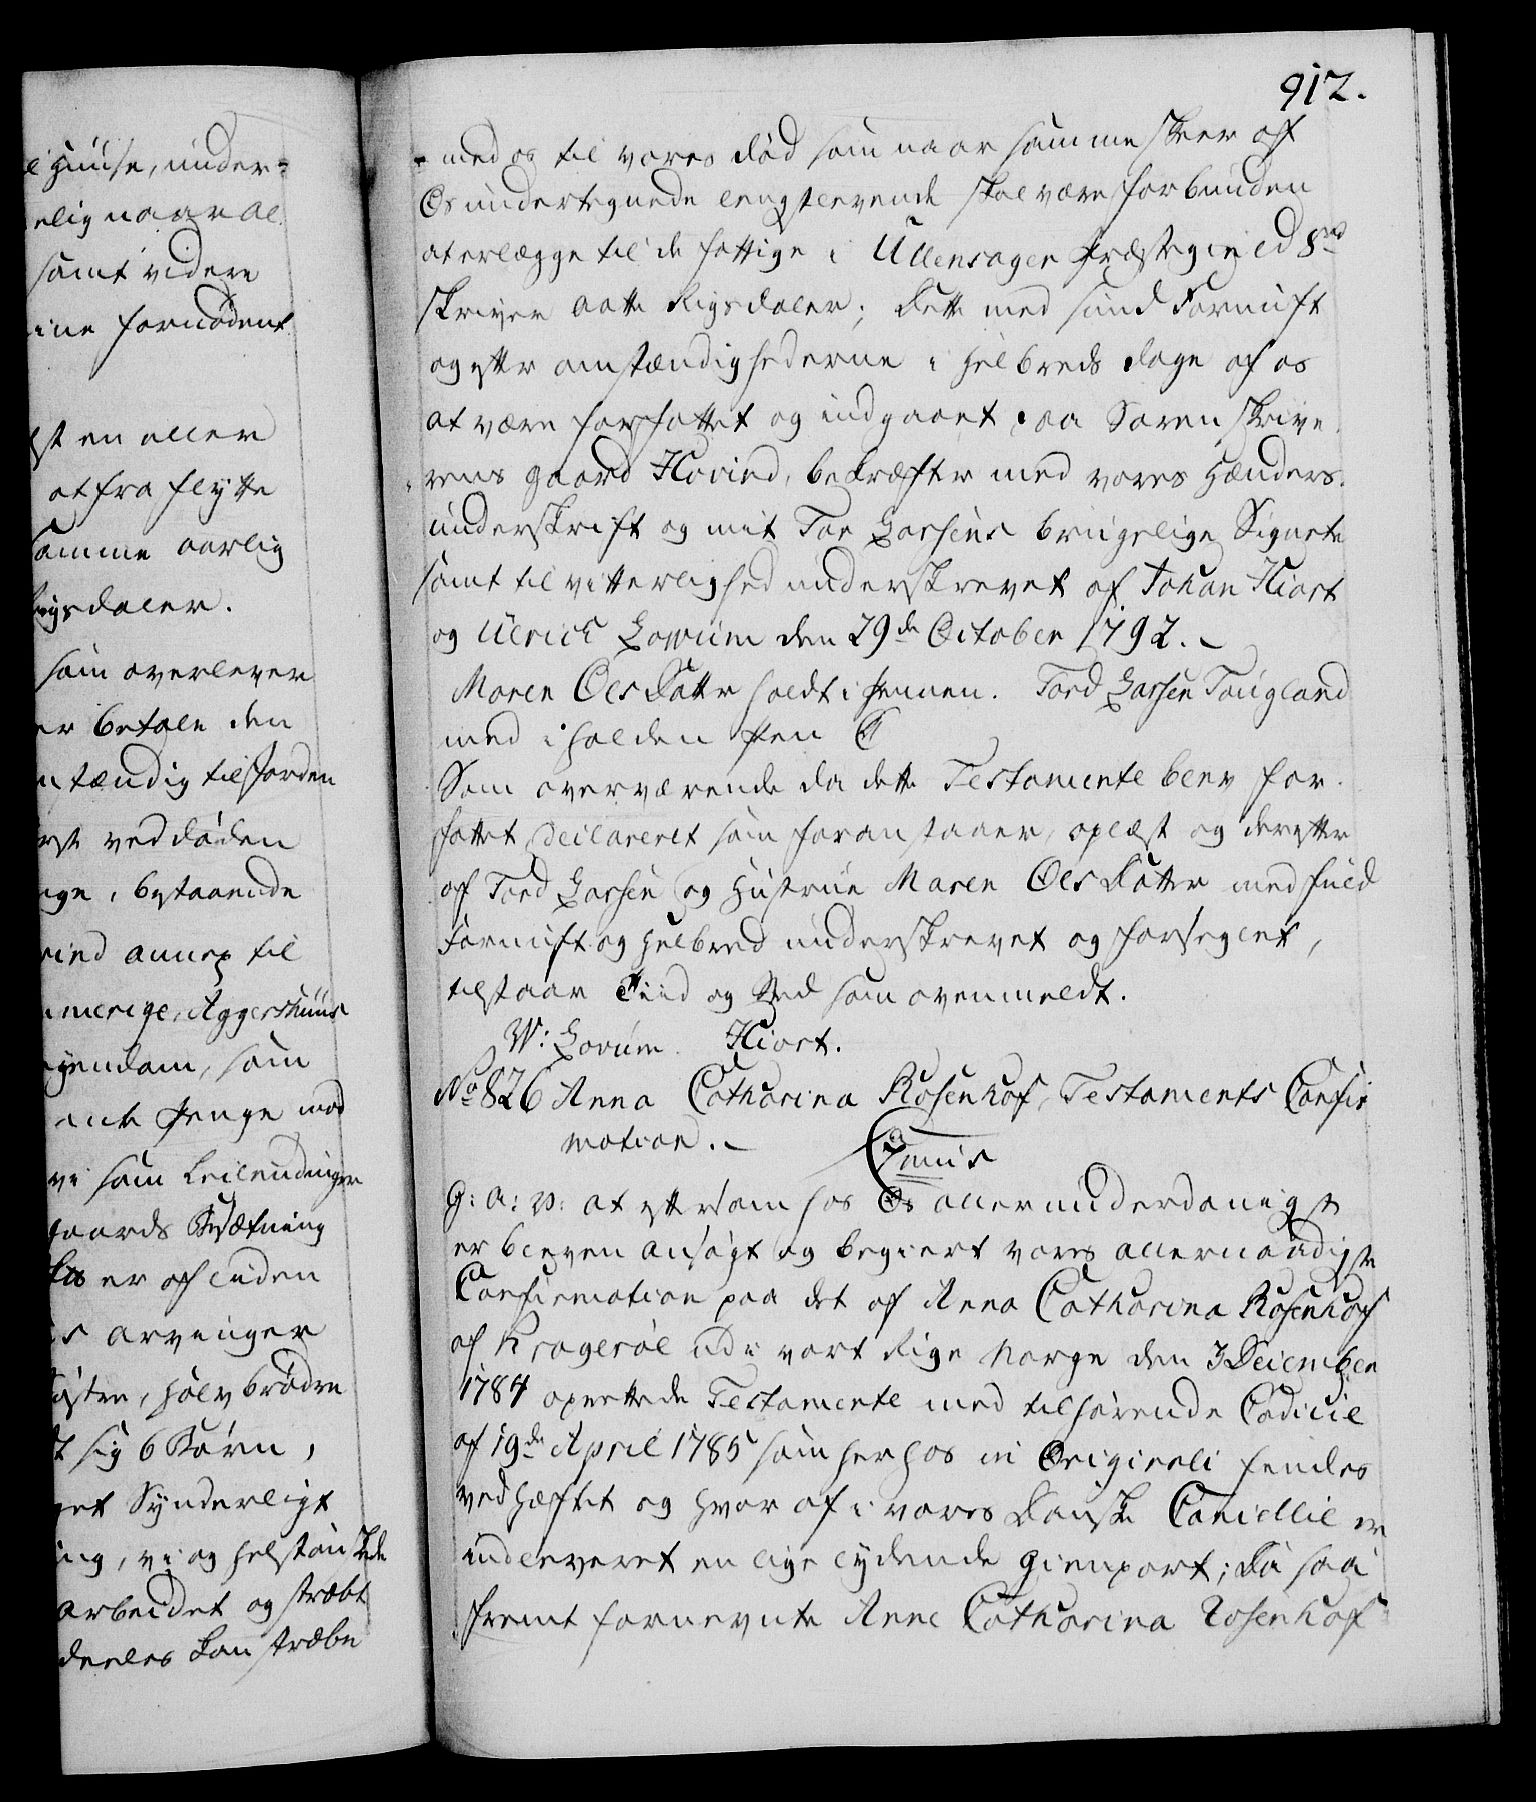 l Huuse, under-
elig naar al
samt videre
ine fornødent
st en eller
at fra flytte
samme aarlig
Rigsdaler.
som overlever
er betale den
stændig tilfordren
rst ved døden
nge, bestaaende
vind annex til
merige, Aggershuus
eyendom, som
Penge mod
vi som Leilendinger
gaards Besætning
er af liden
s arvinger
søstre, halv brødre
t sig 6 Børn,
get Synderligt
ing, vi og
arbeidet og stræbt
deeles kan stræbe
912.
med os til vores død som naar samme skeer af
Os undertegnede lengstlevende skal være forbunden
at erlægge til de fattige i Ullensager Præstegield 8rd
skriver aatte Rigsdaler; Dette med sund Fornuft
og efter omstændighederne i helbreds dage af os
at være forfattet og indgaaet paa Sorenskrive
rens gaard Hovind, bekræfter med vores Hænders
underskrift og mit Tor Larsens brugelige Signete
samt til vitterlighed underskrevet af Johan Hiort
og Ulrich Lovum den 29de October 1792.
Maren Olsdatter holdt i Pennen. Tord Larsen Taugland
med iholden Pen
Som overværende da dette Testamente blev for-
fattet, declareret som foranstaaer, oplæst og derefter
af Tord Larsen og Hustrue Maren Olsdatter med fuld
Fornuft og helbred underskrevet og forseglet,
tilstaar Tiid og Sted som ovenmeldt.
W: Lovum. Hiort.
No 826 Anna Catharina Rosenhof, Testaments Confir
mation.
G: A: V: at eftersom hos Os allerunderdanigst
er bleven ansøgt og begiert vores allernaadigste
Confirmation paa det af Anna Catharina Rosenhof
af Kragerøe udi vort Rige Norge den 3 December
1784 oprettede Testamente med tilhørende Codicil
af 19de April 1785 som herhos in Originali findes
vedhæftet og hvor af i vores Danske Cancellie er
indleveret en lige lydende Gienpart; Da saa
fremt fornevnte Anne Catharina Rosenhof